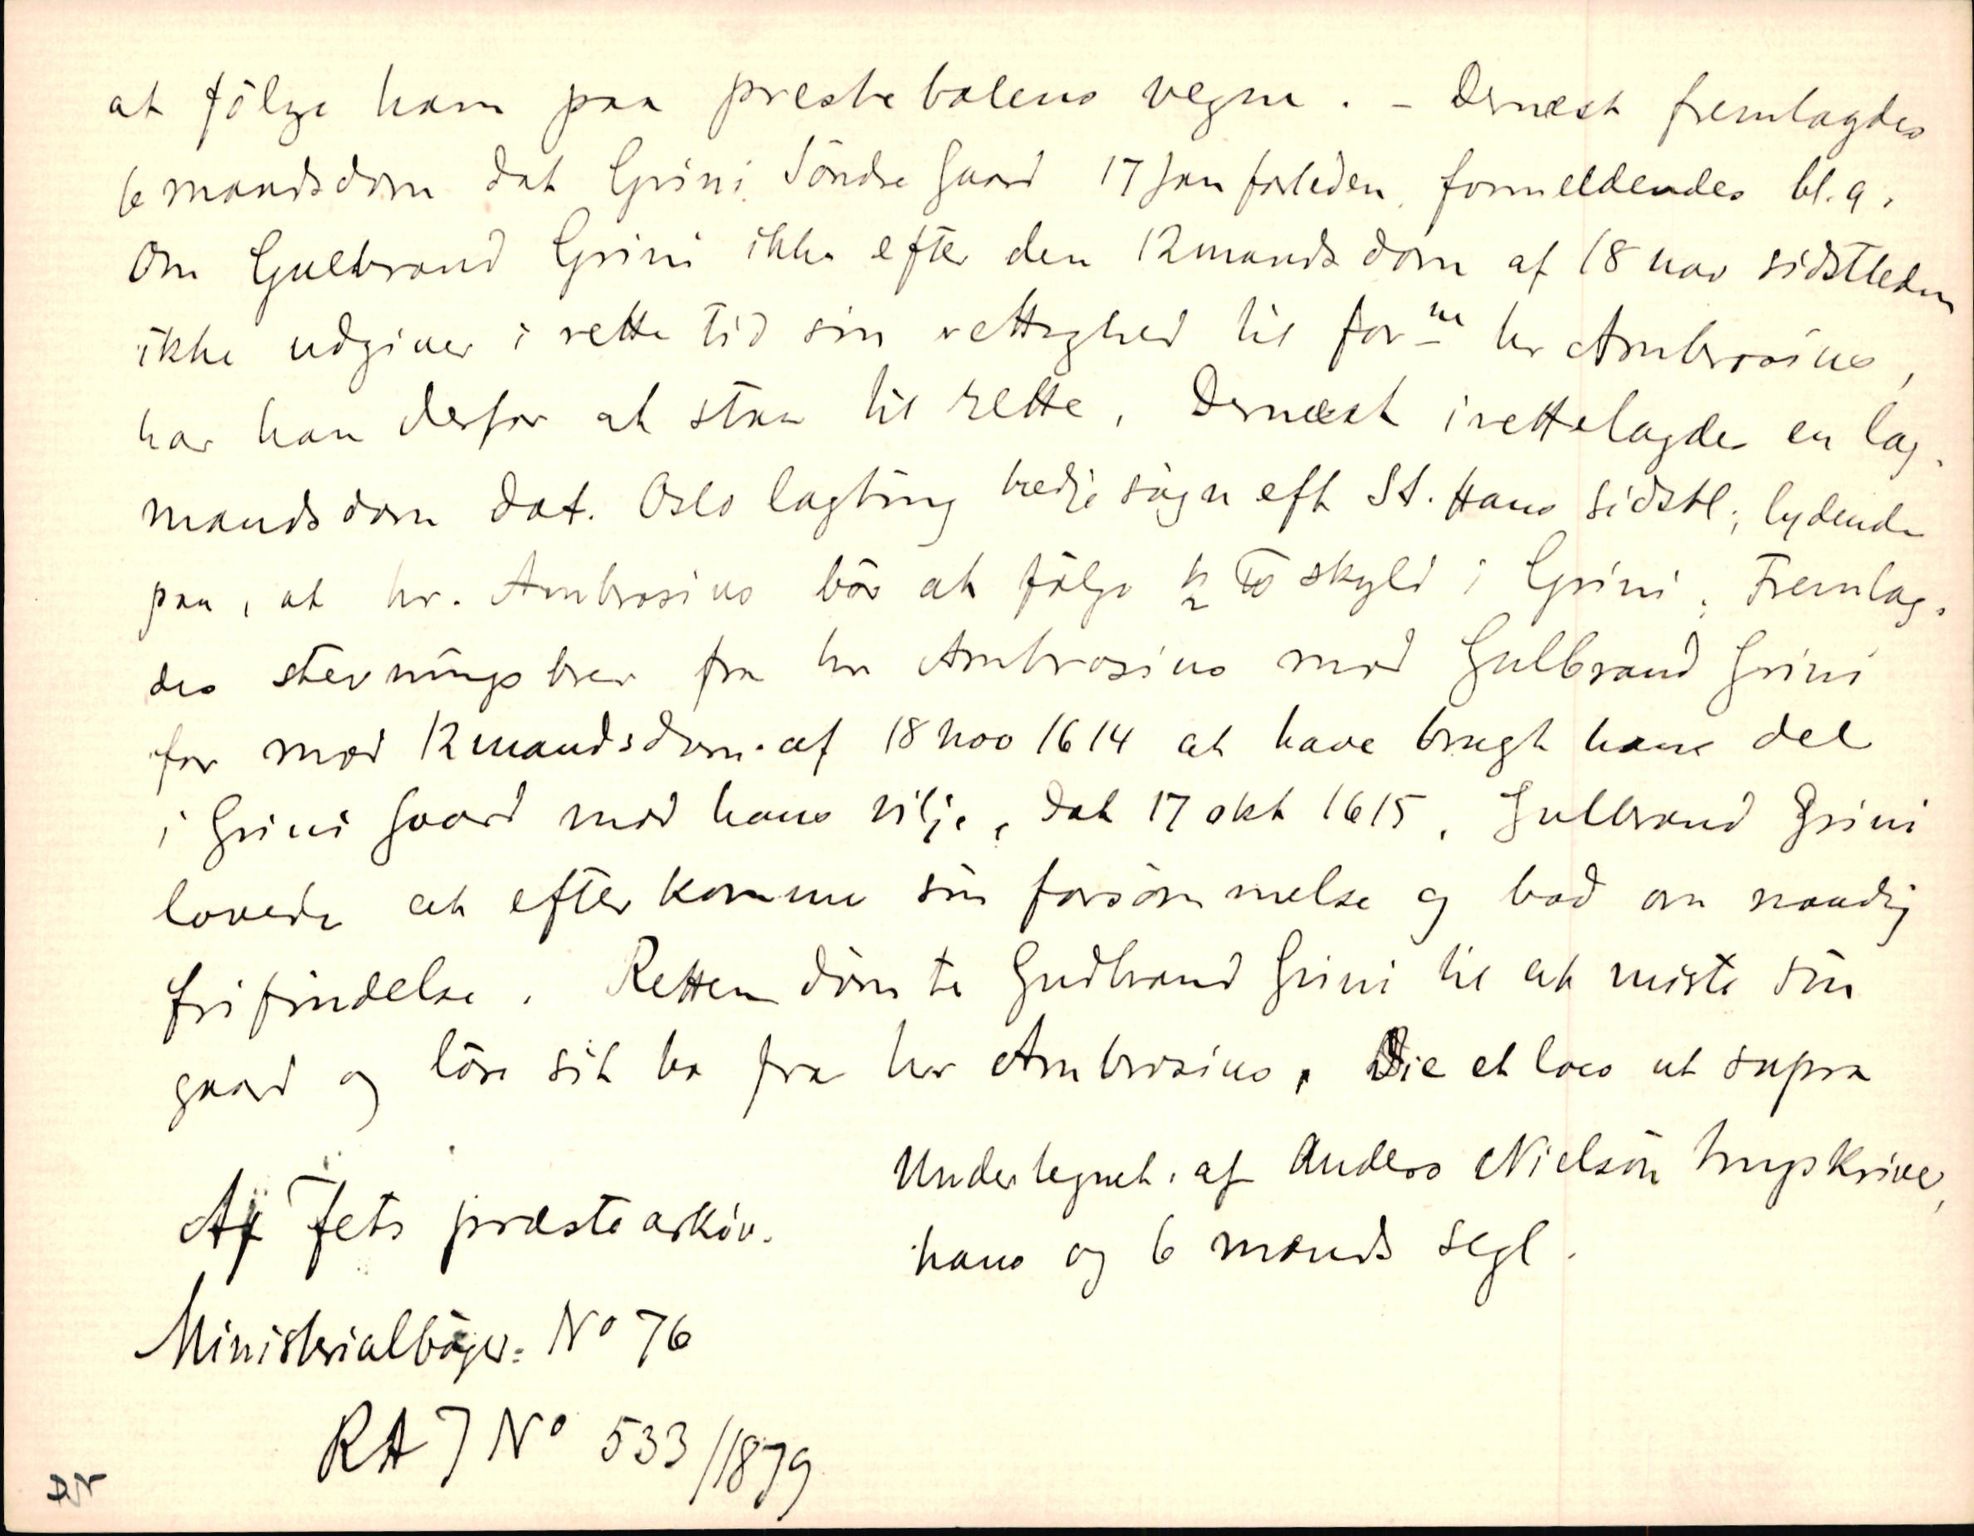 at følge ham paa prestebolens vegne. – Dernæst fremlagdes
6 mandsdom dat Grini Söndre Gaard 17 Jan forleden, formeldendes bl.a.
Om Gulbrand Grini ikke efter den 12 mandsdom af 18 nov sidstleden
ikke udgiver i rette tid sin rettighed til forne hr Ambrosius,
har han derfor at staa til rette. Dernæst irettelagdes en lag-
mandsdom dat. Oslo lagting tredje søgn eft St. Hans sidstl., lydende
paa, at hr. Ambrosius bör at følge skyld i Grini. Fremlag-
des stevningsbrev fra hr Ambrosius mod Gulbrand Grini
for mod 12 mandsdom af 18 nov 1614 at have brugt hans del
i Grini Gaard mod hans vilje, dat 17 okt 1615. Gulbrand Grini
lovede at efterkomme sin forsömmelse og bad om naadig
frifindelse. Retten dömte Gudbrand Grini til at miste sin
gaard og löse sit bo fra hr Ambrosius. Die et loco ut supra
Undertegnet af Anders Nielsön sorenskriver,
hans og 6 mænds segl.
Af Fets præstearkiv.
Ministerialböger: No 76
RA J No 533/1879
DN